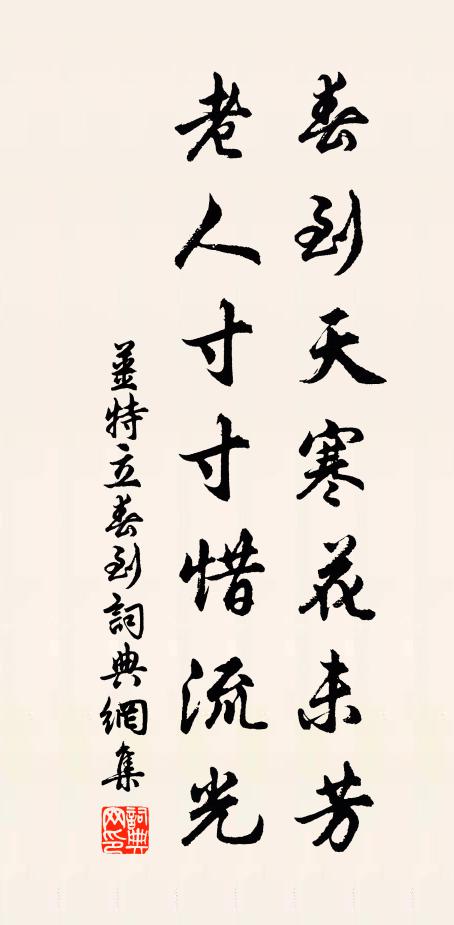 春到天寒花未芳
老人寸寸惜流光
薑特立春到詞典網集
詞典网印